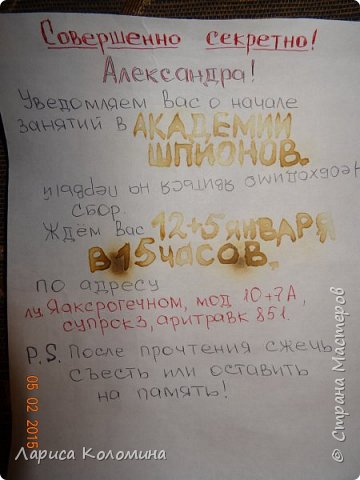 Совершенно секретно!
Александра!
Уведомляем Вас о начале
занятий в АКАДЕМИИ
ШПИОНОВ.
Необходимо явиться на первый
сбор.
Ждём Вас 12+5 ЯНВАРЯ
В 15 ЧАСОВ.
по адресу
лу. Яаксрогечном, мод 10+7А,
супрок3, аритравк 851.
P.S. После прочтения сжечь,
съесть или оставить
на память!
05 02 2015
Лариса Коломина
© Страна Мастеров